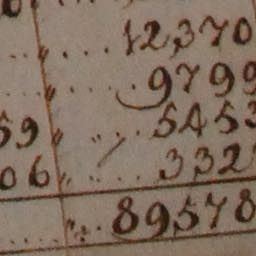 12,370
9799
59 " 5453
06 " 332
89578